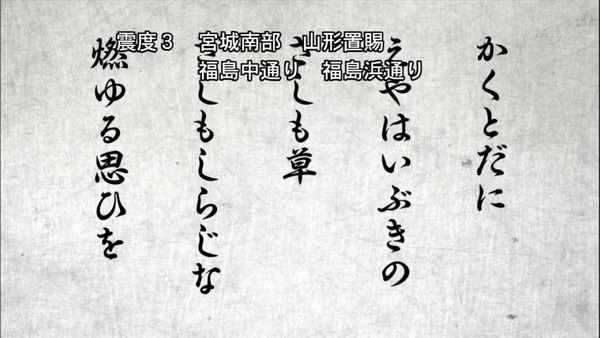 震度３　宮城南部　山形置賜
福島中通り　福島浜通り
かくとだに
えやはいぶきの
さしも草
さしもしらじな
燃ゆる思ひを